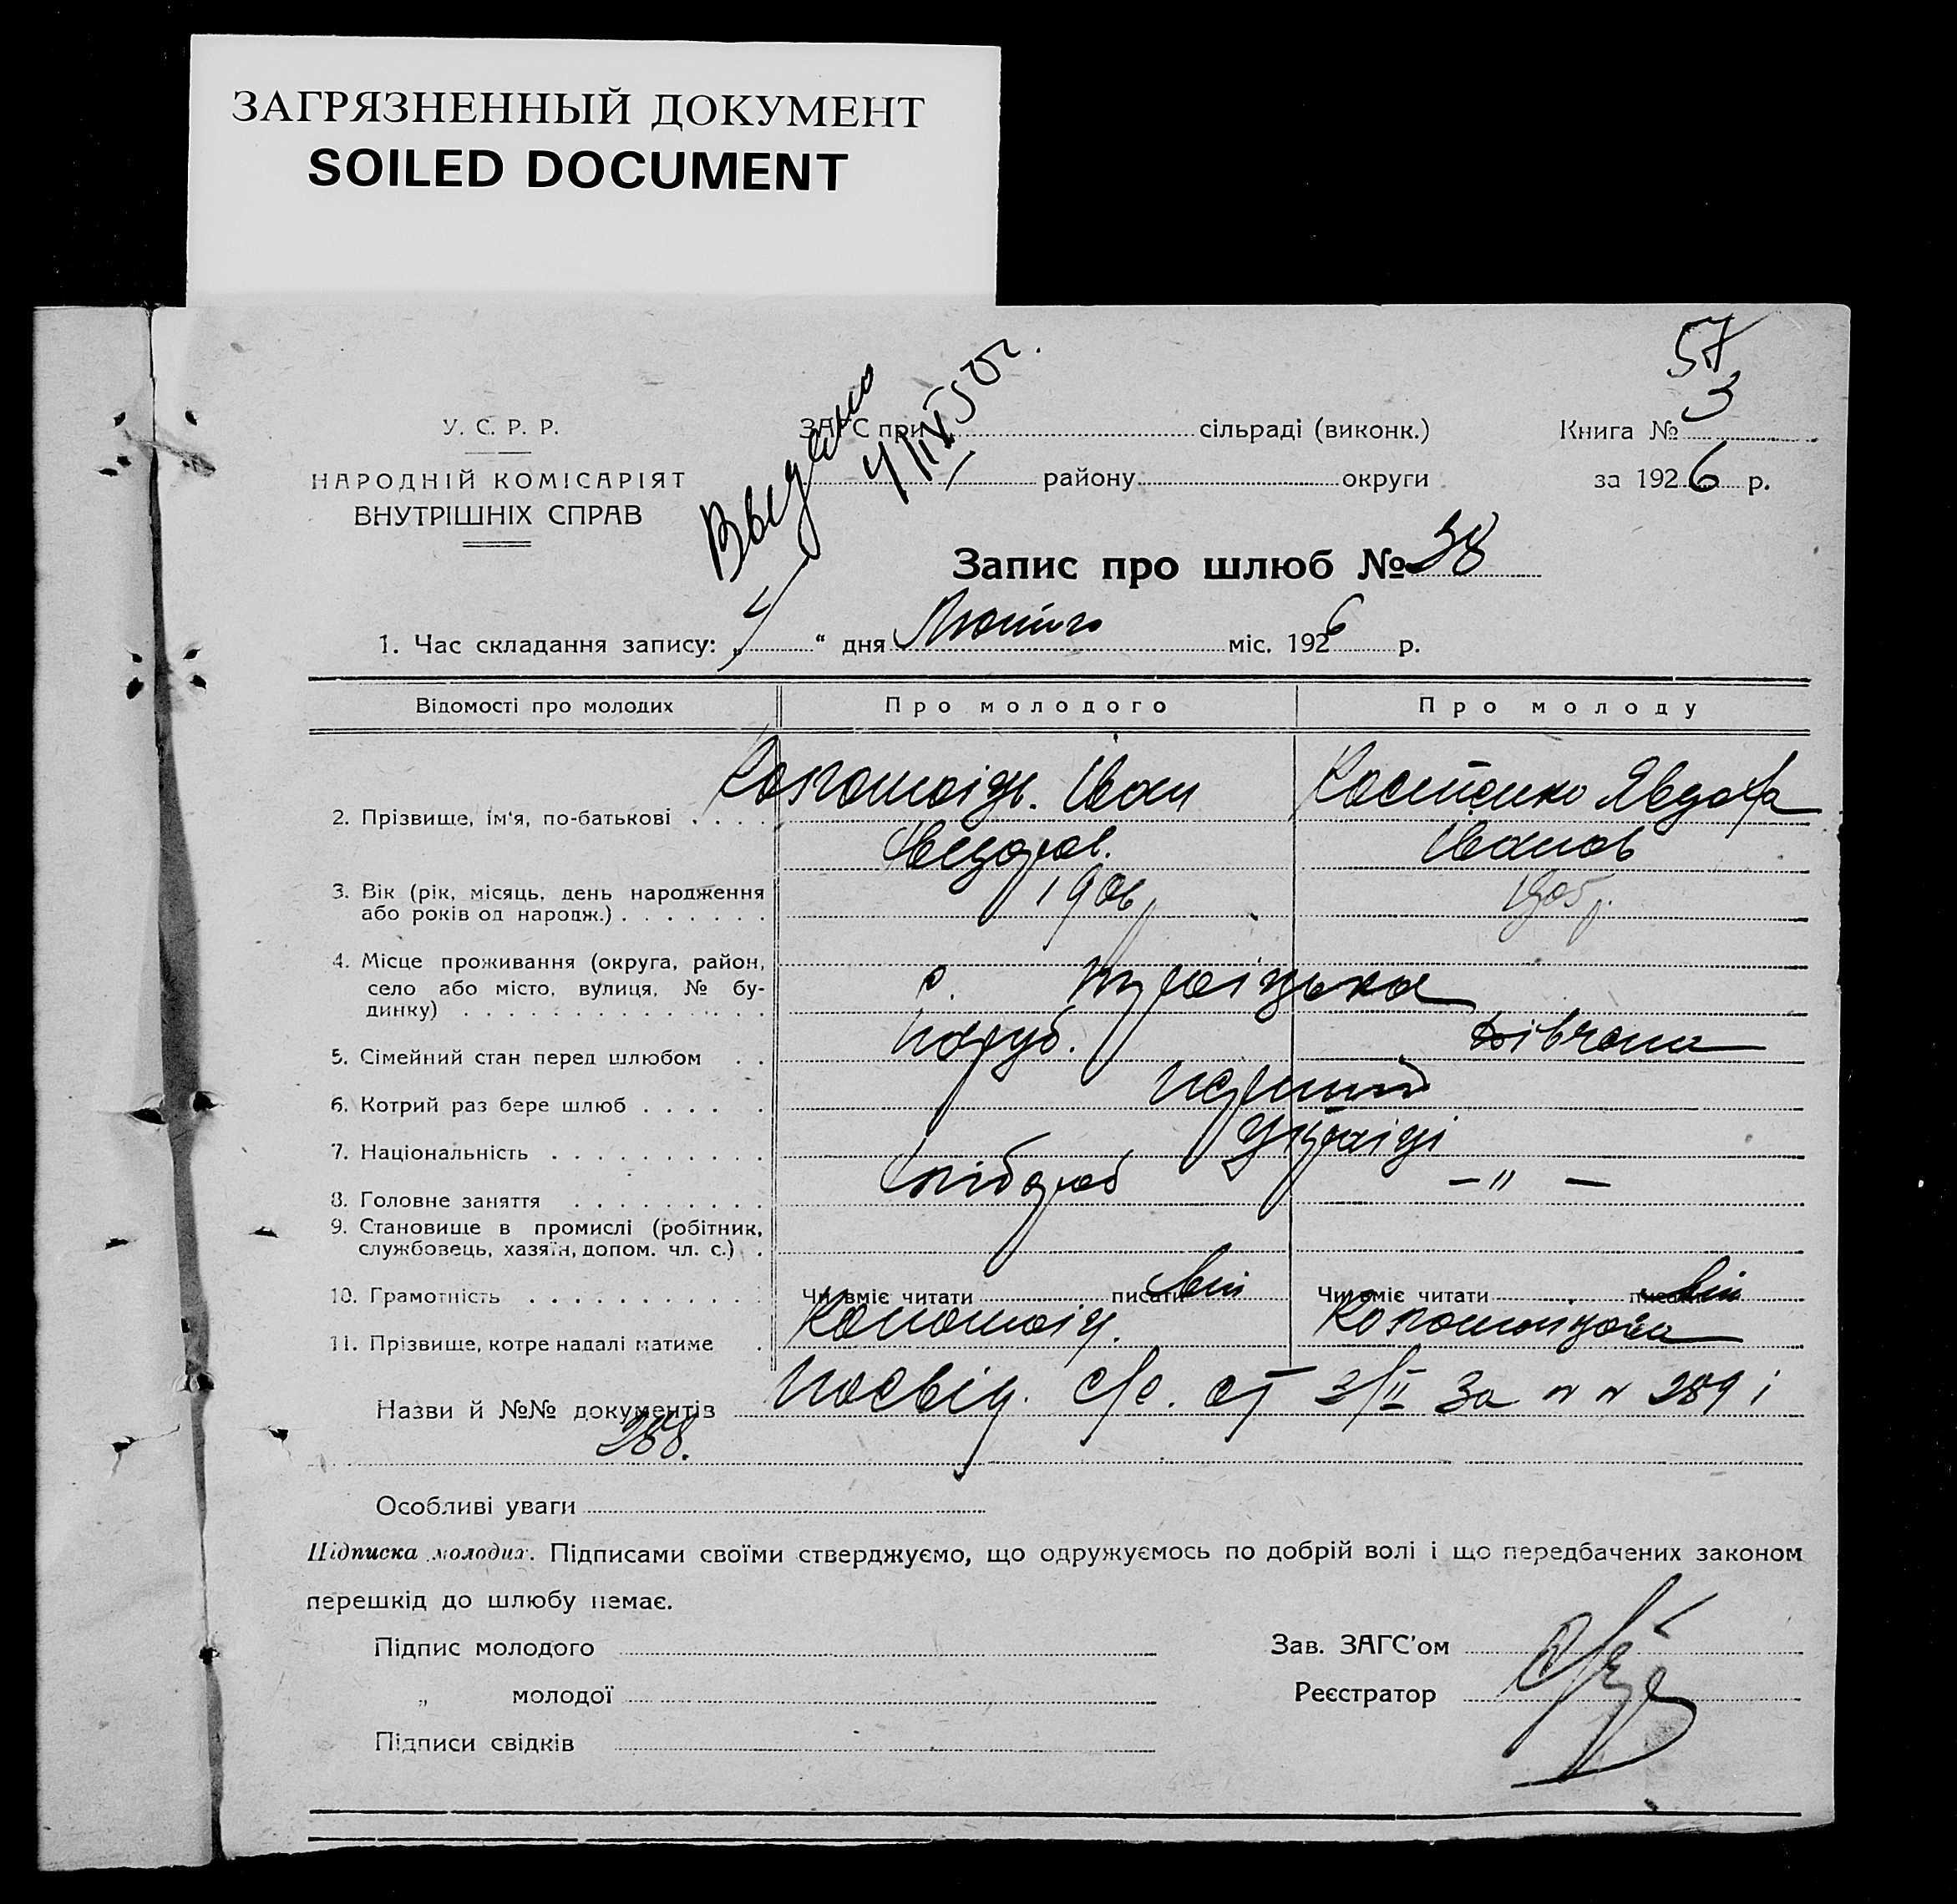 ЗАГРЯЗНЕННЫЙ ДОКУМЕНТ
SOILED DOCUMENT
57
У. С. Р. Р.
НАРОДНІЙ КОМІСАРІЯТ
ВНУТРІШНІХ СПРАВ
Выдано
ЗАГС при сільраді (виконк.)
району округи
Книга № 3
за 1926 р.
Запис про шлюб № 38
1. Час складання запису: „4“ дня Лютого міс. 1926 р.
Відомості про молодих Про молодого Про молоду
2. Прізвище, ім'я, по-батькові Іван Костенко Явдоха
Іванов
3. Вік (рік, місяць, день народження
або років од народж.) 1906 1905 р.
4. Місце проживання (округа, район,
село або місто, вулиця, № бу-
динку) с.
5. Сімейний стан перед шлюбом паруб. дівчина
6. Котрий раз бере шлюб перший
7. Національність Українці
8. Головне заняття хлібороб — " —
9. Становище в промислі (робітник,
службовець, хазяїн, допом. чл. с.)
10. Грамотність Чи вміє читати писати Чи вміє читати писати
11. Прізвище, котре надалі матиме
Назви й №№ документів Посвід. с/с. от 3/II за №№ 289 і
288.
Особливі уваги
Підписка молодих. Підписами своїми стверджуємо, що одружуємось по добрій волі і що передбачених законом
перешкід до шлюбу немає.
Підпис молодого
„ молодої
Підписи свідків
Зав. ЗАГС'ом
Реєстратор